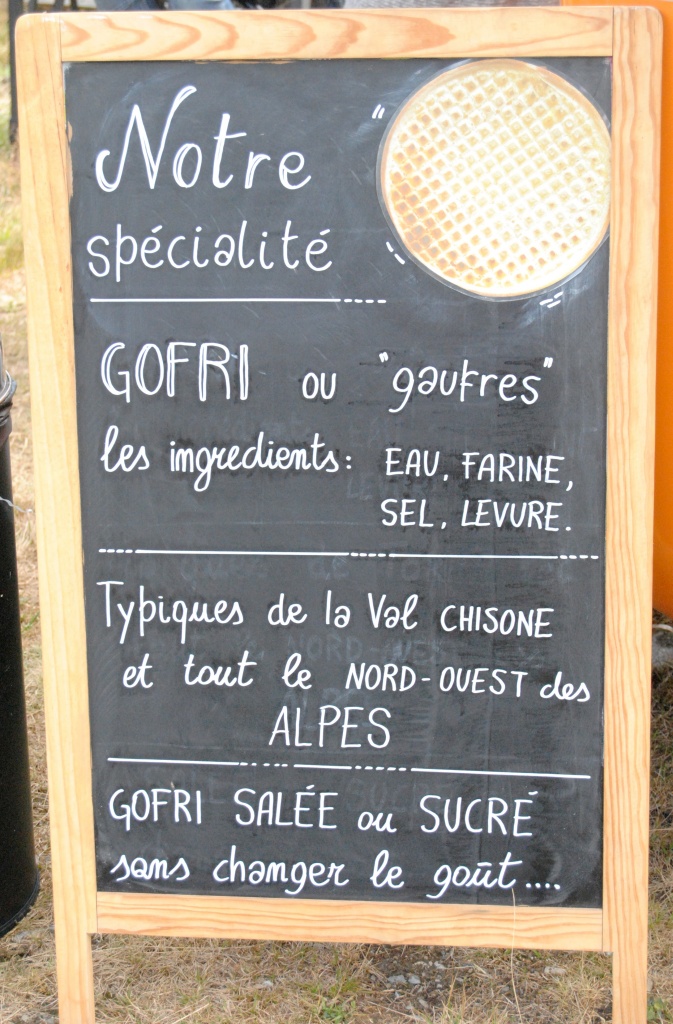 Notre
spécialité
GOFRI ou "gaufres"
les ingredients: EAU, FARINE,
SEL, LEVURE.
Typiques de la Val CHISONE
et tout le NORD-OUEST des
ALPES
GOFRI SALÉE ou SUCRÉ
sans changer le goût....